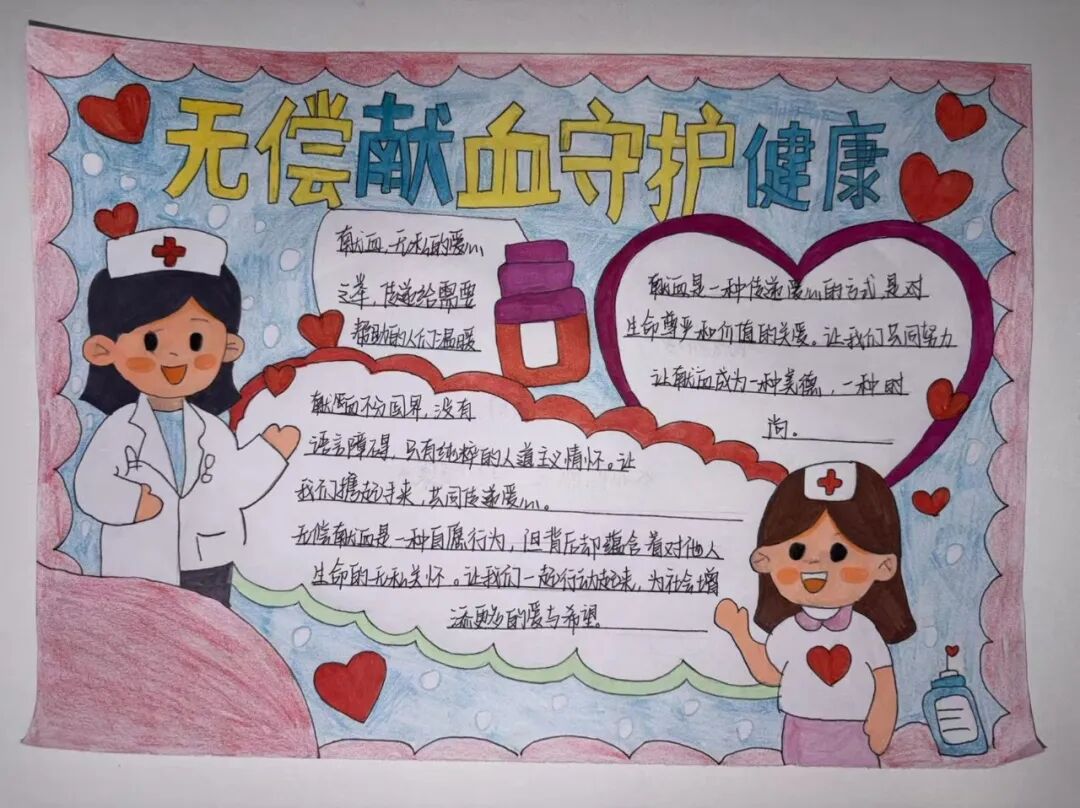 无偿献血守护健康
献血,无私的爱心
之举,传递给需要
帮助的人们温暖
献血是一种传递爱心的方式,是对
生命尊严和价值的关爱。让我们共同努力
让献血成为一种美德,一种时
尚。
献血不分国界,没有
语言障碍,只有纯粹的人道主义情怀。让
我们携起手来,共同传递爱心。
无偿献血是一种自愿行为,但背后却蕴含着对他人
生命的无私关怀。让我们一起行动起来,为社会增
添更多的爱与希望。